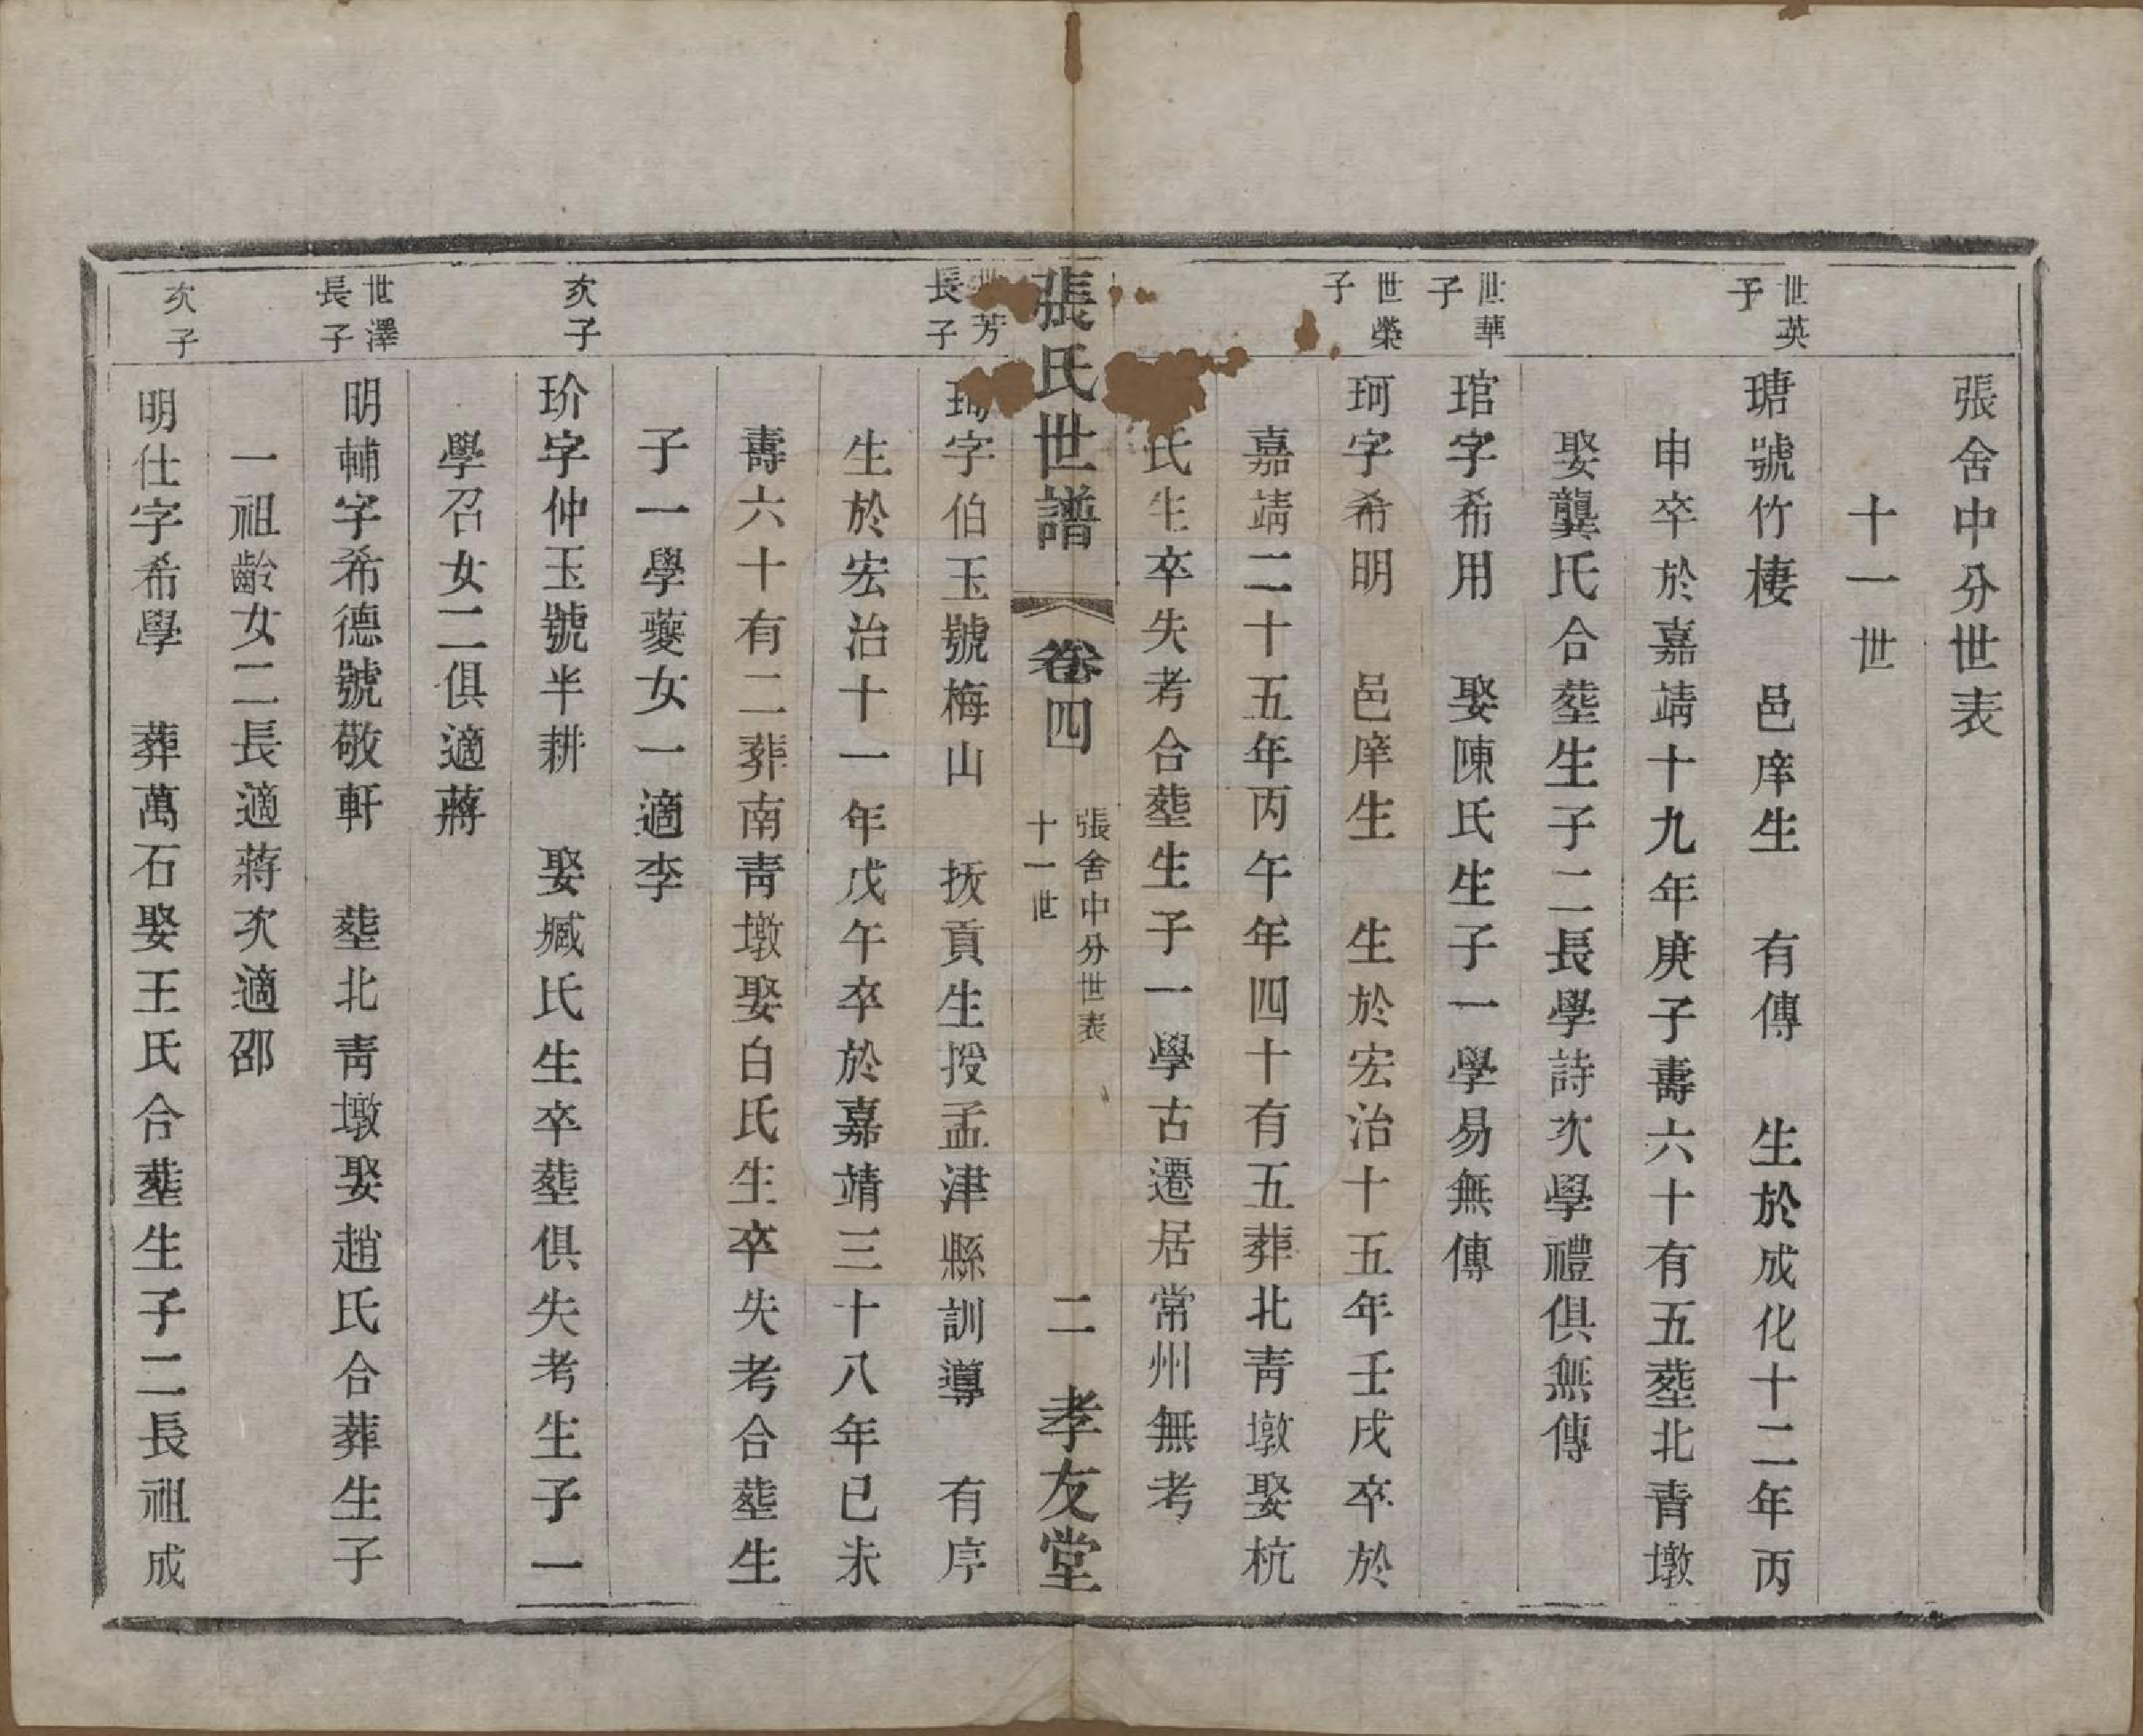 張舍中分世表
十一世
世英
子
瑭號竹棲　邑庠生　有傳　生於成化十二年丙
申卒於嘉靖十九年庚子壽六十有五塟北青墩
娶龔氏合塟生子二長學詩次學禮俱無傳
世華
子
琯字希用　娶陳氏生子一學易無傳
世榮
子
珂字希明　邑庠生　生於宏治十五年壬戌卒於
嘉靖二十五年丙午年四十有五葬北青墩娶杭
氏生卒失考合塟生子一學古遷居常州無考
張氏世譜　卷四　張舍中分世表　十一世　二　孝友堂
世芳
長子
字伯玉號梅山　拔貢生授孟津縣訓導　有序
生於宏治十一年戊午卒於嘉靖三十八年已未
壽六十有二葬南靑墩娶白氏生卒失考合塟生
子一學夔女一適李
次子
玠字仲玉號半耕　娶臧氏生卒塟俱失考生子一
學召女二俱適蔣
世澤
長子
明輔字希德號敬軒　塟北靑墩娶趙氏合葬生子
一祖齡女二長適蔣次適邵
次子
明仕字希學　葬萬石娶王氏合塟生子二長祖成